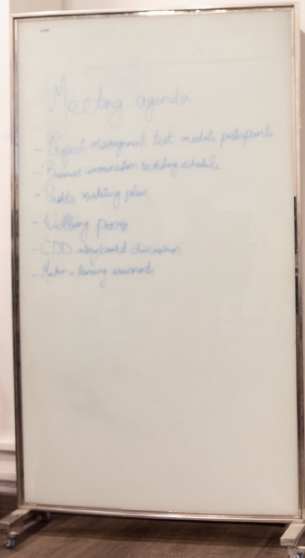 Meeting agenda
- Project management test module participants
- Business communication recording schedule
- Profile marketing plan
- Wellbeing
- CDD storyboard discussion
- Machine learning assessments